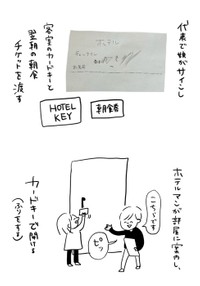 代表で娘がサインし
客室のカードキーと
翌朝の朝食
チケットを渡す
ホテル
HOTEL
KEY
朝食券
ホテルマンが部屋に案内し、
こちらです
ピッ
カードキーで開ける
(ふりをする)